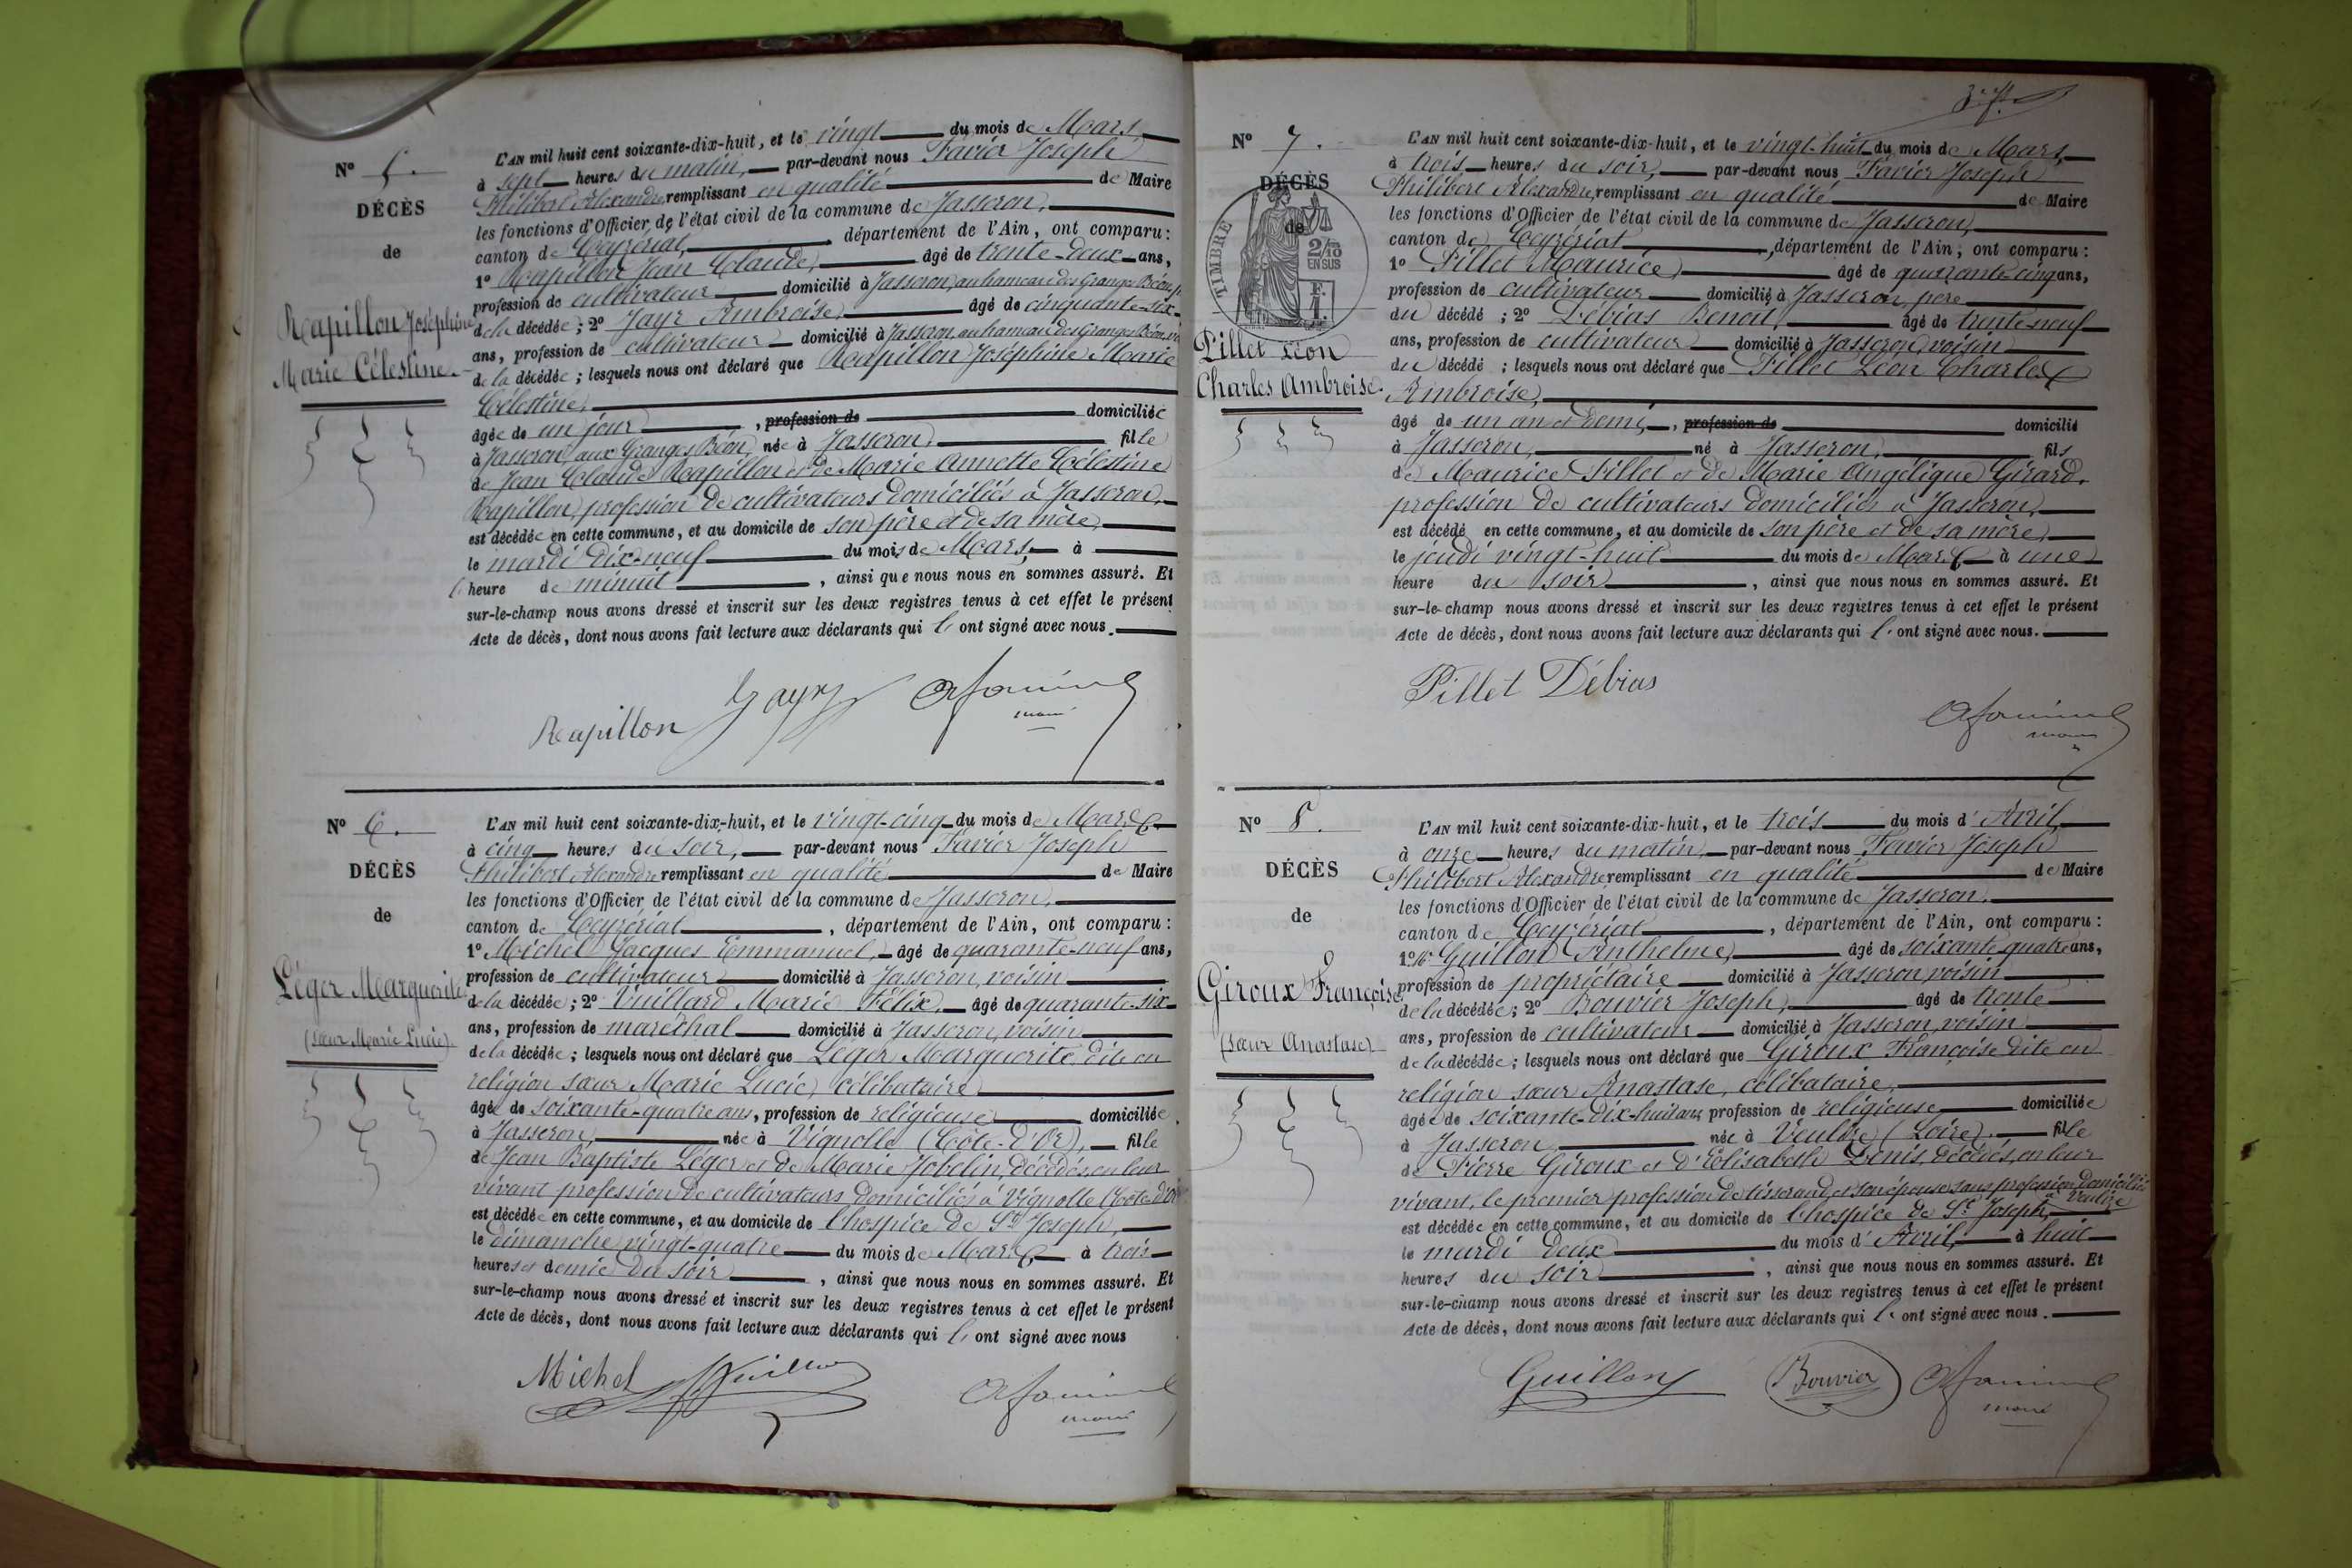 N° 5.
DÉCÈS
de
Rapillon Joséphine
Marie Célestine.
L'AN mil huit cent soixante-dix-huit, et le vingt du mois de Mars,
à sept heures du matin, par-devant nous Favier Joseph
Philibert Alexandre, remplissant en qualité de Maire
les fonctions d'Officier de l'état civil de la commune de Jasseron,
canton de Ceyzériat, département de l'Ain, ont comparu :
1° Rapillon Jean Claude, âgé de trente-deux ans,
profession de cultivateur domicilié à Jasseron, au hameau des Granges Béon,
de la décédée ; 2° Jayr Ambroise, âgé de cinquante-six
ans, profession de cultivateur domicilié à Jasseron, au hameau des Granges Béon,
de la décédée ; lesquels nous ont déclaré que Rapillon Joséphine Marie
Célestine,
âgée de un jour, profession de domiciliée
à Jasseron, aux Granges Béon, née à Jasseron, fille
de Jean Claude Rapillon et de Marie Annette Célestine
Rapillon, profession de cultivateurs domiciliés à Jasseron,
est décédée en cette commune, et au domicile de son père et de sa mère,
le mardi dix-neuf du mois de Mars, à
l'heure de minuit, ainsi que nous nous en sommes assuré. Et
sur-le-champ nous avons dressé et inscrit sur les deux registres tenus à cet effet le présent
Acte de décès, dont nous avons fait lecture aux déclarants qui l' ont signé avec nous.
Rapillon Jayr
maire
N° 6.
DÉCÈS
de
Léger Marguerite
(sœur Marie Lucie)
L'AN mil huit cent soixante-dix-huit, et le vingt-cinq du mois de Mars
à cinq heures du soir, par-devant nous Favier Joseph
Philibert Alexandre remplissant en qualité de Maire
les fonctions d'Officier de l'état civil de la commune de Jasseron,
canton de Ceyzériat, département de l'Ain, ont comparu :
1° Michel Jacques Emmanuel, âgé de quarante-neuf ans,
profession de cultivateur domicilié à Jasseron, voisin
de la décédée ; 2° Vuillard Marie Félix, âgé de quarante-six
ans, profession de maréchal domicilié à Jasseron, voisin
de la décédée ; lesquels nous ont déclaré que Léger Marguerite dite en
religion sœur Marie Lucie, célibataire
âgée de soixante-quatre ans, profession de religieuse domiciliée
à Jasseron, née à Vignolle (Côte-d'Or), fille
de Jean Baptiste Léger et de Marie Jobelin, décédés, en leur
vivant profession de cultivateurs domiciliés à Vignolle (Côte-d'Or
est décédée en cette commune, et au domicile de l'hospice de St Joseph,
le dimanche vingt-quatre du mois de Mars à trois
heures et demie du soir, ainsi que nous nous en sommes assuré. Et
sur-le-champ nous avons dressé et inscrit sur les deux registres tenus à cet effet le présent
Acte de décès, dont nous avons fait lecture aux déclarants qui l' ont signé avec nous
Michel
maire
N° 7.
DÉCÈS
de
TIMBRE
2/10
EN SUS
F.
1.
Pillet Léon
Charles Ambroise.
L'AN mil huit cent soixante-dix-huit, et le vingt-huit du mois de Mars,
à trois heures du soir, par-devant nous Favier Joseph
Philibert Alexandre, remplissant en qualité de Maire
les fonctions d'Officier de l'état civil de la commune de Jasseron,
canton de Ceyzériat, département de l'Ain, ont comparu :
1° Pillet Maurice, âgé de quarante-cinq ans,
profession de cultivateur domicilié à Jasseron, père
du décédé ; 2° Débias Benoit, âgé de trente-neuf
ans, profession de cultivateur domicilié à Jasseron, voisin
du décédé ; lesquels nous ont déclaré que Pillet Léon Charles
Ambroise,
âgé de un an et demi, profession de domicilié
à Jasseron, né à Jasseron, fils
de Maurice Pillet et de Marie Angélique Girard.
profession de cultivateurs domiciliés à Jasseron,
est décédé en cette commune, et au domicile de son père et de sa mère,
le jeudi vingt-huit du mois de Mars à une
heure du soir, ainsi que nous nous en sommes assuré. Et
sur-le-champ nous avons dressé et inscrit sur les deux registres tenus à cet effet le présent
Acte de décès, dont nous avons fait lecture aux déclarants qui l' ont signé avec nous.
Pillet Débias
maire
N° 8.
DÉCÈS
de
Giroux Françoise,
(sœur Anastase)
L'AN mil huit cent soixante-dix-huit, et le trois du mois d' Avril,
à onze heures du matin, par-devant nous Favier Joseph
Philibert Alexandre remplissant en qualité de Maire
les fonctions d'Officier de l'état civil de la commune de Jasseron,
canton de Ceyzériat, département de l'Ain, ont comparu :
1° Guillon Anthelme, âgé de soixante-quatre ans,
profession de propriétaire domicilié à Jasseron, voisin
de la décédée ; 2° Bouvier Joseph, âgé de trente
ans, profession de cultivateur domicilié à Jasseron, voisin
de la décédée ; lesquels nous ont déclaré que Giroux Françoise dite en
religion sœur Anastase, célibataire,
âgée de soixante-dix-huit ans, profession de religieuse domiciliée
à Jasseron née à Veulize (Loire). fille
de Pierre Giroux et d'Elisabeth Denis, décédés, en leur
vivant, le premier profession de tisserand, et son épouse sans profession domiciliés
à Veulize
est décédée en cette commune, et au domicile de l'hospice de St Joseph,
le mardi deux du mois d' Avril, à huit
heures du soir, ainsi que nous nous en sommes assuré. Et
sur-le-champ nous avons dressé et inscrit sur les deux registres tenus à cet effet le présent
Acte de décès, dont nous avons fait lecture aux déclarants qui l' ont signé avec nous.
Guillon Bouvier
maire